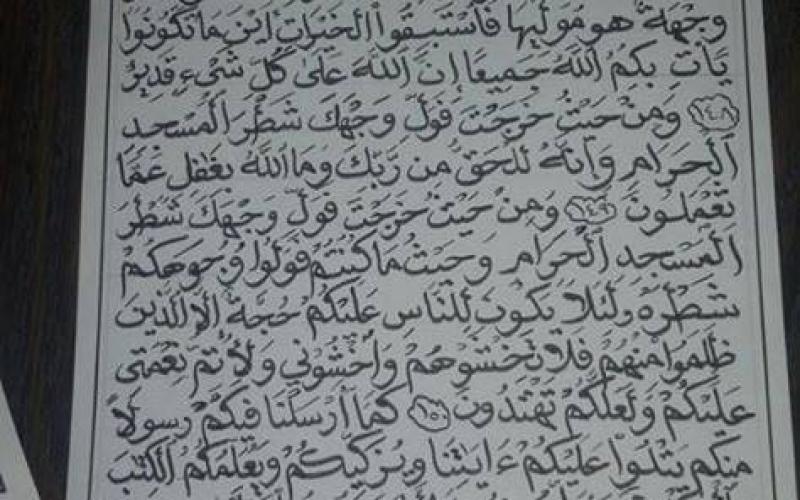 وِجْهَةٌ هُوَ مُوَلِّيهَا فَاسْتَبِقُوا الْخَيْرَاتِ أَيْنَ مَا تَكُونُوا
يَأْتِ بِكُمُ اللَّهُ جَمِيعًا إِنَّ اللَّهَ عَلَىٰ كُلِّ شَيْءٍ قَدِيرٌ
١٤٨ وَمِنْ حَيْثُ خَرَجْتَ فَوَلِّ وَجْهَكَ شَطْرَ الْمَسْجِدِ
الْحَرَامِ وَإِنَّهُ لَلْحَقُّ مِن رَّبِّكَ وَمَا اللَّهُ بِغَافِلٍ عَمَّا
تَعْمَلُونَ ١٤٩ وَمِنْ حَيْثُ خَرَجْتَ فَوَلِّ وَجْهَكَ شَطْرَ
الْمَسْجِدِ الْحَرَامِ وَحَيْثُ مَا كُنتُمْ فَوَلُّوا وُجُوهَكُمْ
شَطْرَهُ لِئَلَّا يَكُونَ لِلنَّاسِ عَلَيْكُمْ حُجَّةٌ إِلَّا الَّذِينَ
ظَلَمُوا مِنْهُمْ فَلَا تَخْشَوْهُمْ وَاخْشَوْنِي وَلِأُتِمَّ نِعْمَتِي
عَلَيْكُمْ وَلَعَلَّكُمْ تَهْتَدُونَ ١٥٠ كَمَا أَرْسَلْنَا فِيكُمْ رَسُولًا
مِّنكُمْ يَتْلُوا عَلَيْكُمْ ءَايَٰتِنَا وَيُزَكِّيكُمْ وَيُعَلِّمُكُمُ الْكِتَٰبَ